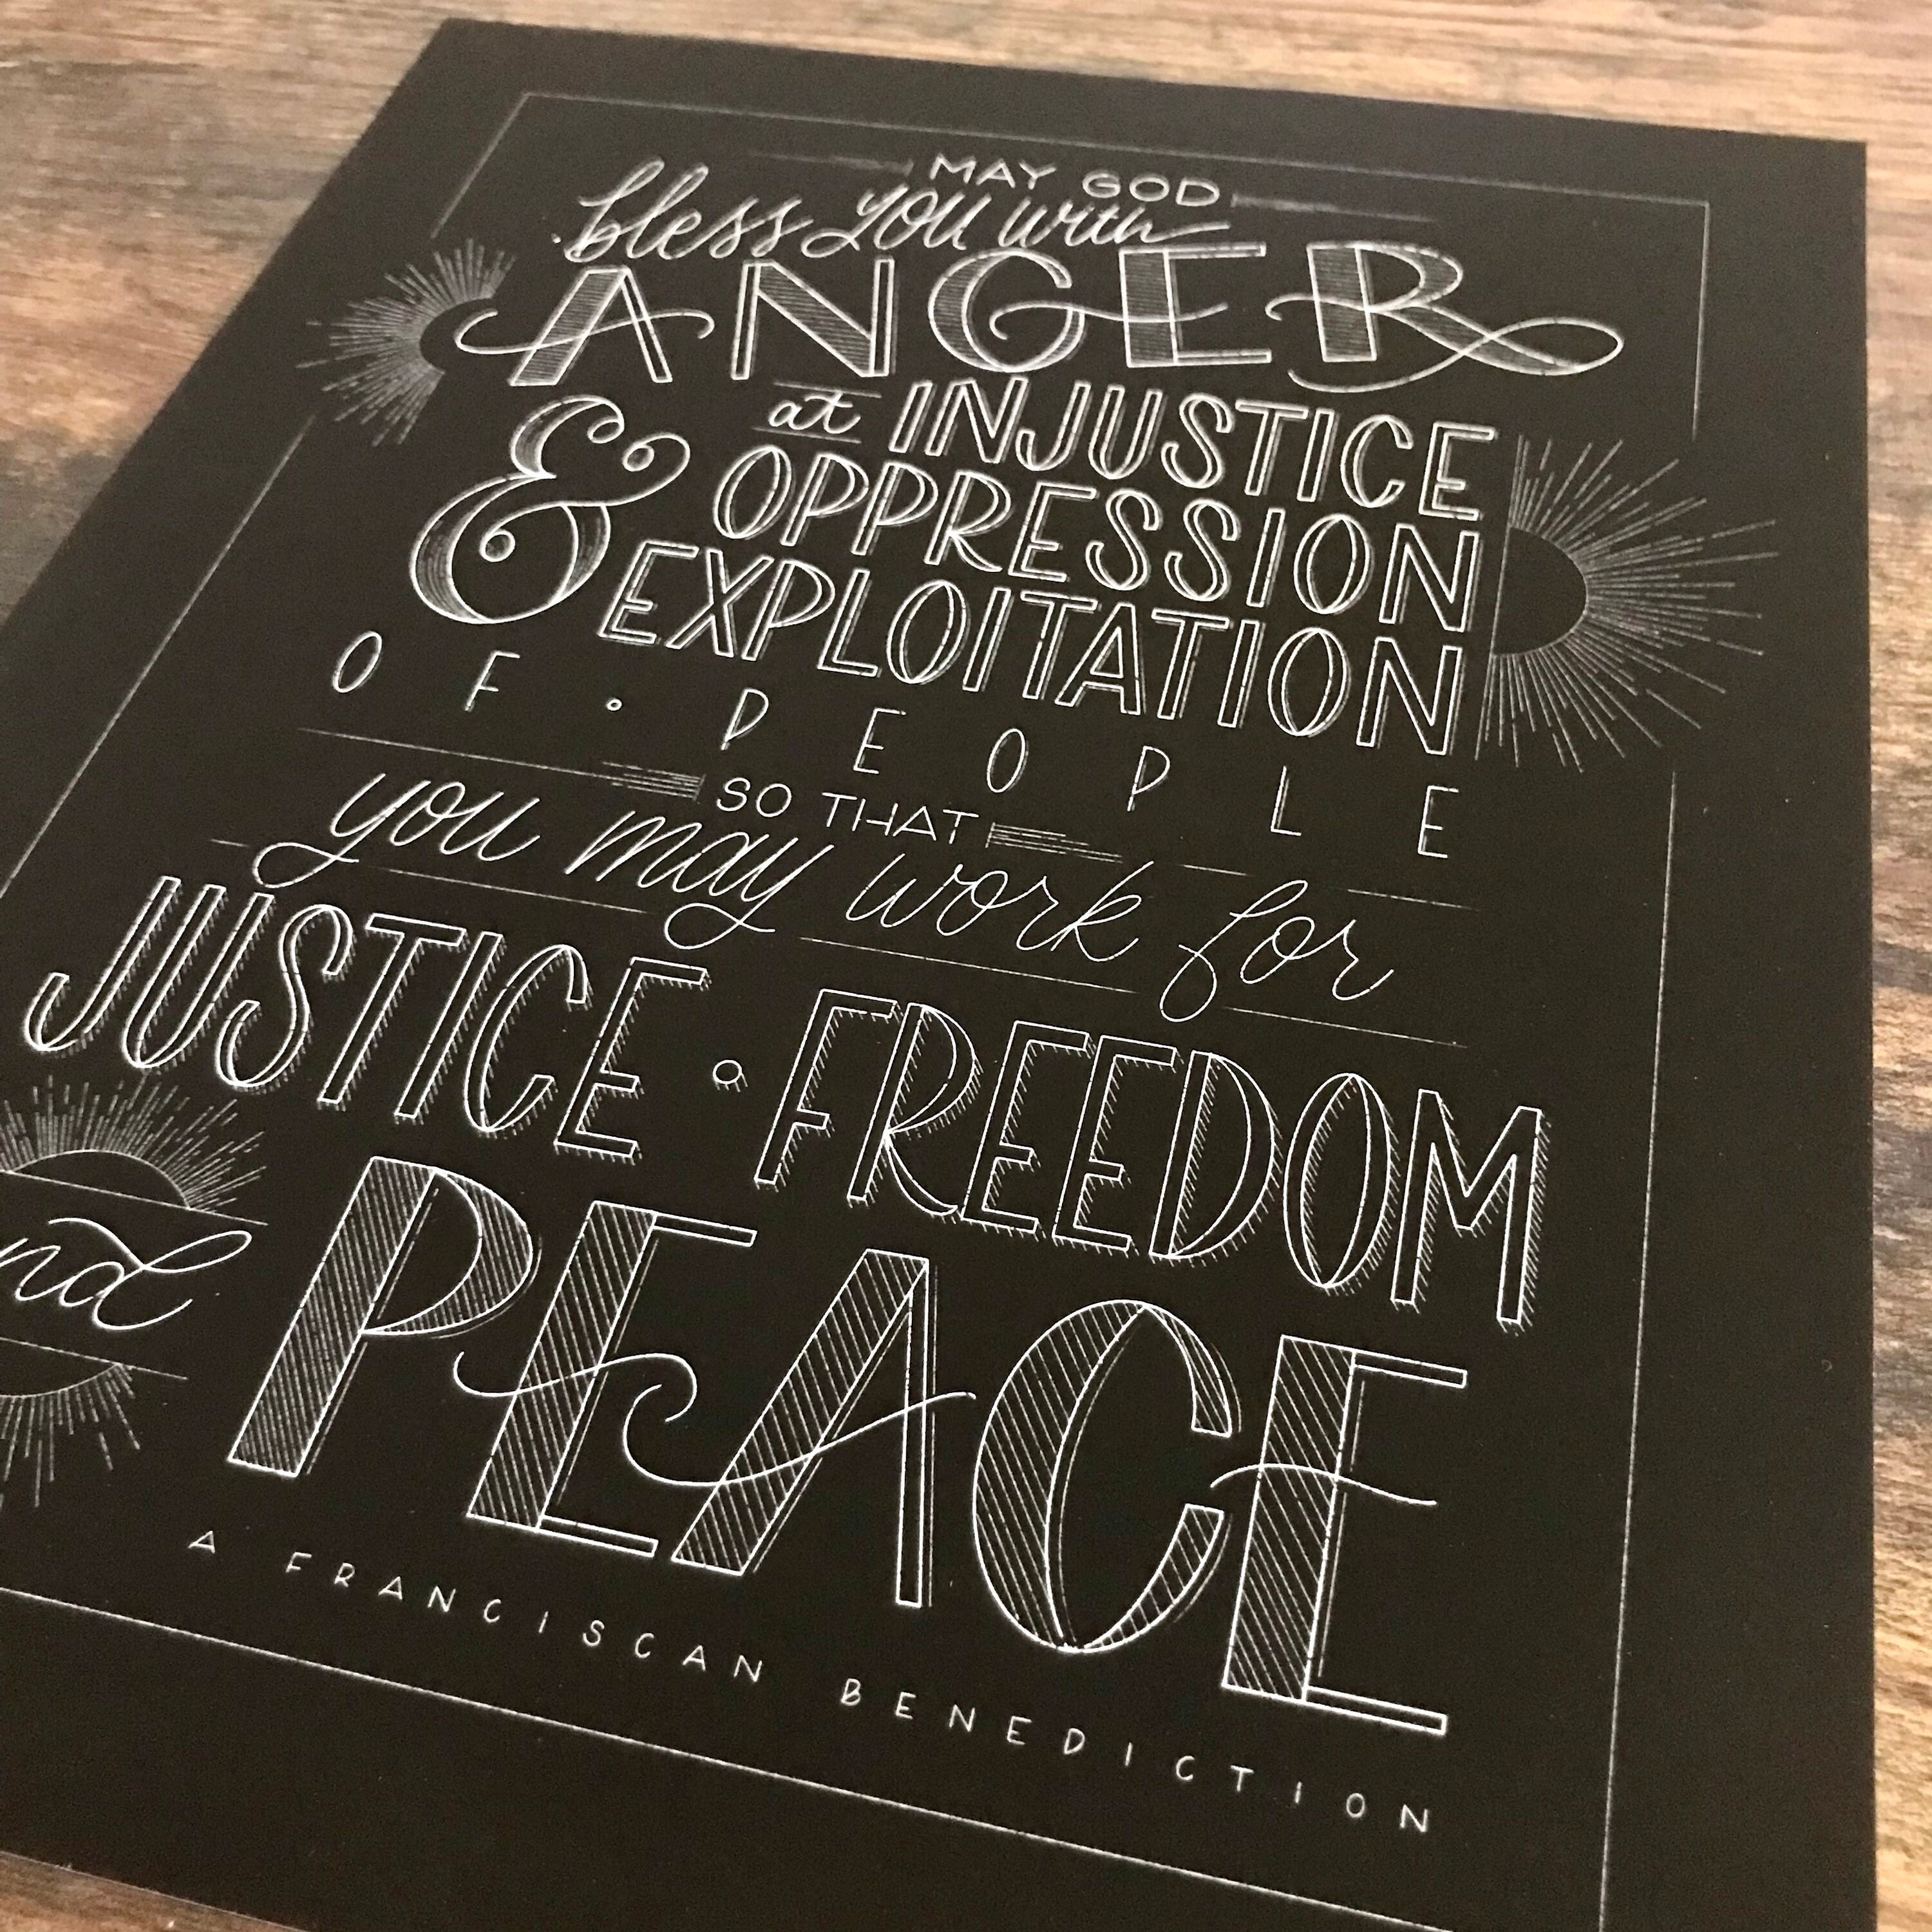 MAY GOD
bless you with
ANGER
at INJUSTICE
OPPRESSION
& EXPLOITATION
OF • PEOPLE
SO THAT
you may work for
JUSTICE • FREEDOM
nd PEACE
A FRANCISCAN BENEDICTION